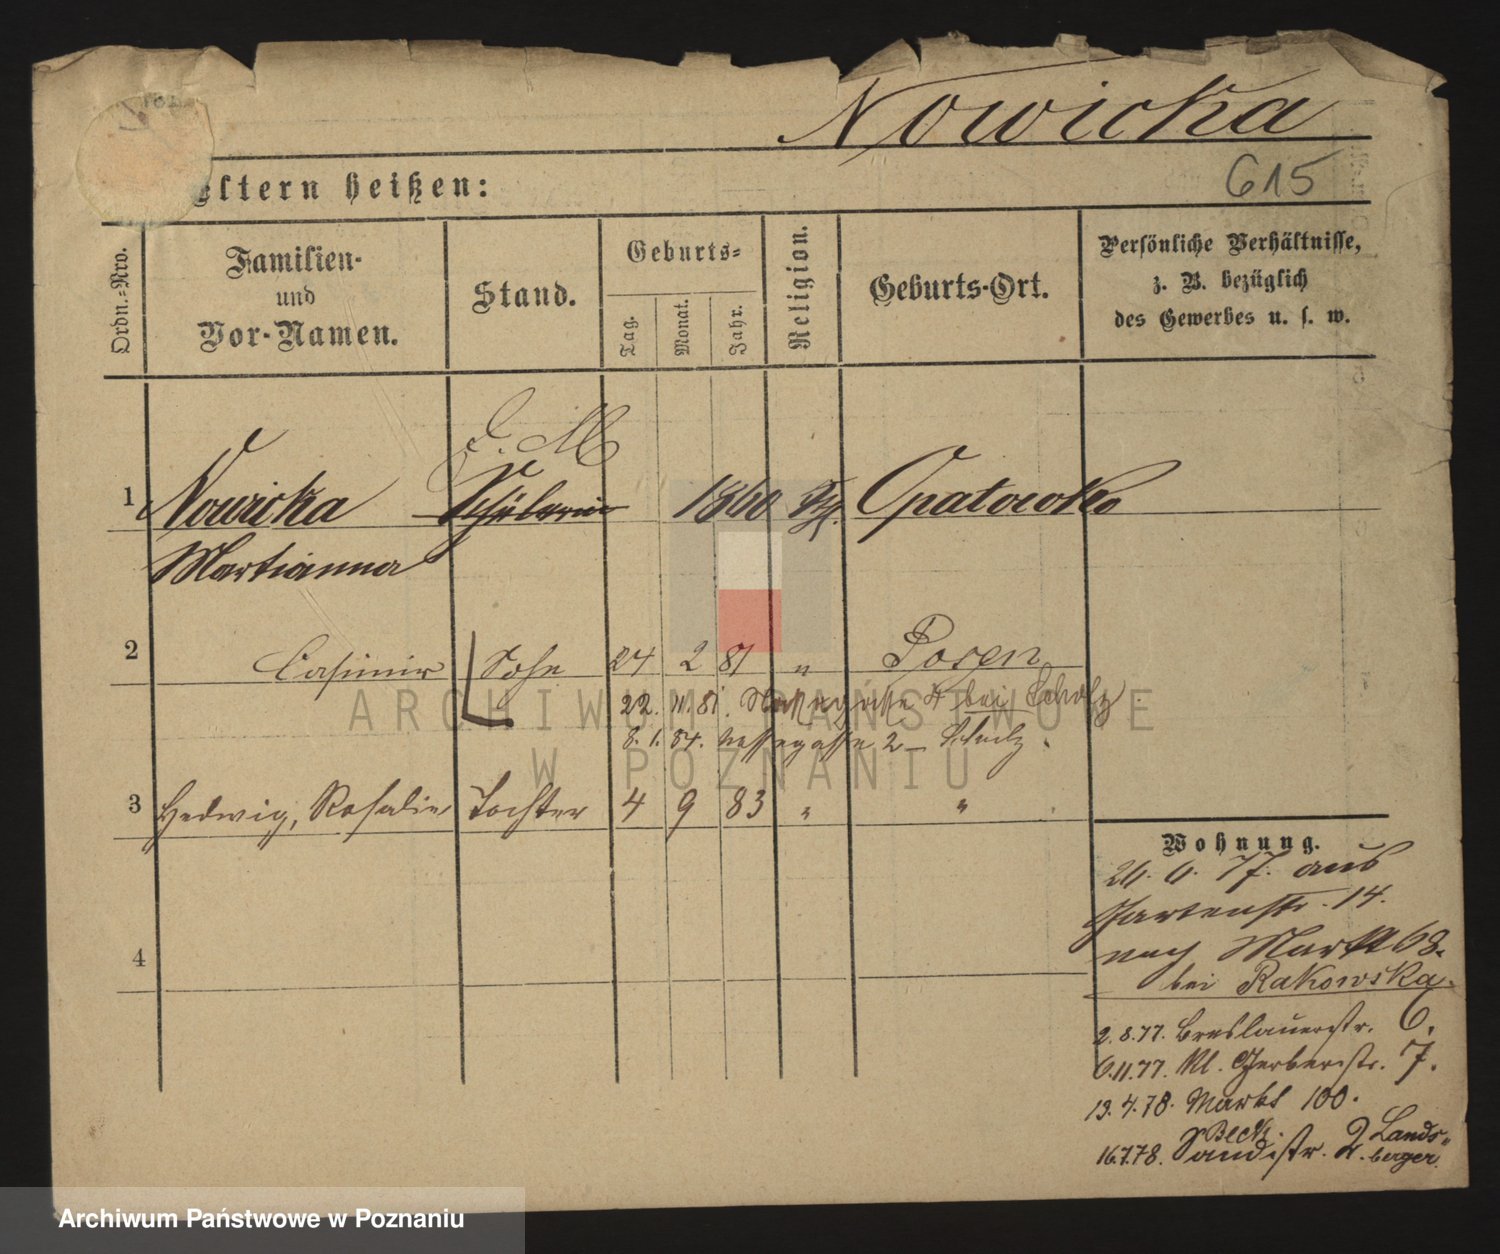 Nowicka
615
Eltern heißen:
Ordn.-Nro.
Familien-
und
Vor-Namen.
Stand.
Geburts-
Tag.
Monat.
Jahr.
Religion.
Geburts-Ort.
Persönliche Verhältnisse,
z. B. bezüglich
des Gewerbes u. s. w.
D. M
1 Nowicka Schülerin 1860 Opatowko
Martianna
2 Casimir Sohn 24 2 81 " Posen
22. 11. 81. 4 bei Scholz
8. 1. 84. 2
3 Hedwig, Rosalie Tochter 4 9 83 " "
4
Wohnung.
26. 6. 77. aus
Gartenstr. 14.
nach Markt 68.
bei Rakowska.
2.8.77. Breslauerstr. 6.
6.11.77. Kl. Gerberstr. 7.
19.4.78. Markt 100.
Beck.
16.7.78. Sandstr. 2. Lands-
berger.
ARCHIWUM PAŃSTWOWE
W POZNANIU
Archiwum Państwowe w Poznaniu